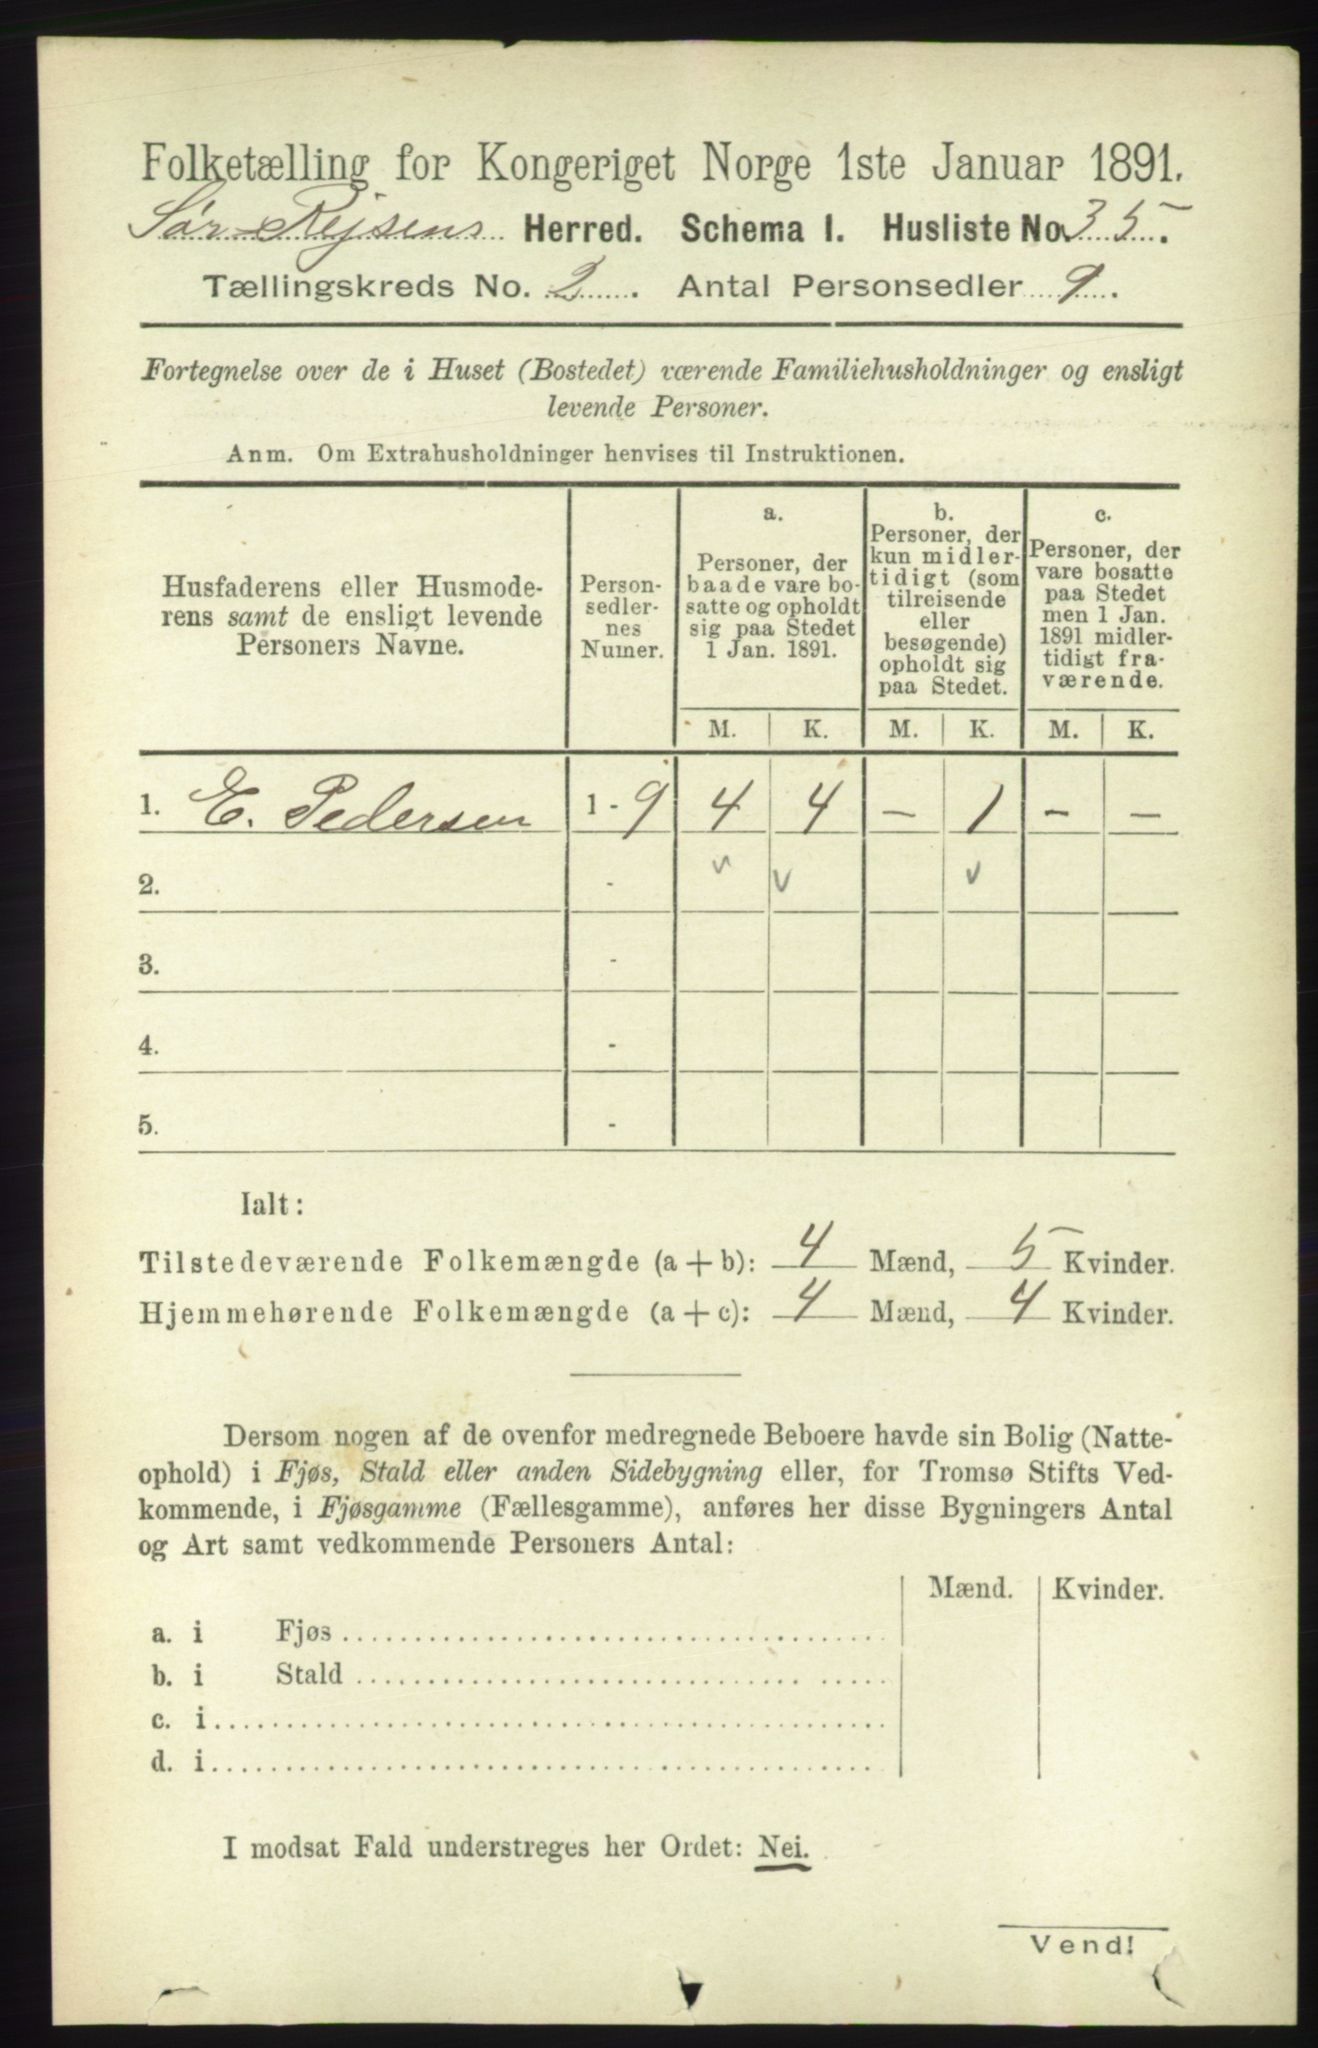 Folketælling for Kongeriget Norge 1ste Januar 1891.
Sør-Rejsens Herred. Schema I. Husliste No. 35.
Tællingskreds No. 2. Antal Personsedler 9.
Fortegnelse over de i Huset (Bostedet) værende Familiehusholdninger og ensligt
levende Personer.
Anm. Om Extrahusholdninger henvises til Instruktionen.
Husfaderens eller Husmode-
rens samt de ensligt levende
Personers Navne.
Person-
sedler-
nes
Numer.
a.
Personer, der
baade vare bo-
satte og opholdt
sig paa Stedet
1 Jan. 1891.
b.
Personer, der
kun midler-
tidigt (som
tilreisende
eller
besøgende)
opholdt sig
paa Stedet.
c.
Personer, der
vare bosatte
paa Stedet
men 1 Jan.
1891 midler-
tidigt fra-
værende.
M. K. M. K. M. K.
1. E. Pedersen 1 - 9 4 4 - 1 - -
2. -
3. -
4. -
5. -
Ialt:
Tilstedeværende Folkemængde (a + b): 4 Mænd, 5 Kvinder.
Hjemmehørende Folkemængde (a + c): 4 Mænd, 4 Kvinder.
Dersom nogen af de ovenfor medregnede Beboere havde sin Bolig (Natte-
ophold) i Fjøs, Stald eller anden Sidebygning eller, for Tromsø Stifts Ved-
kommende, i Fjøsgamme (Fællesgamme), anføres her disse Bygningers Antal
og Art samt vedkommende Personers Antal:
Mænd. Kvinder.
a. i Fjøs
b. i Stald
c. i
d. i
I modsat Fald understreges her Ordet: Nei.
Vend!